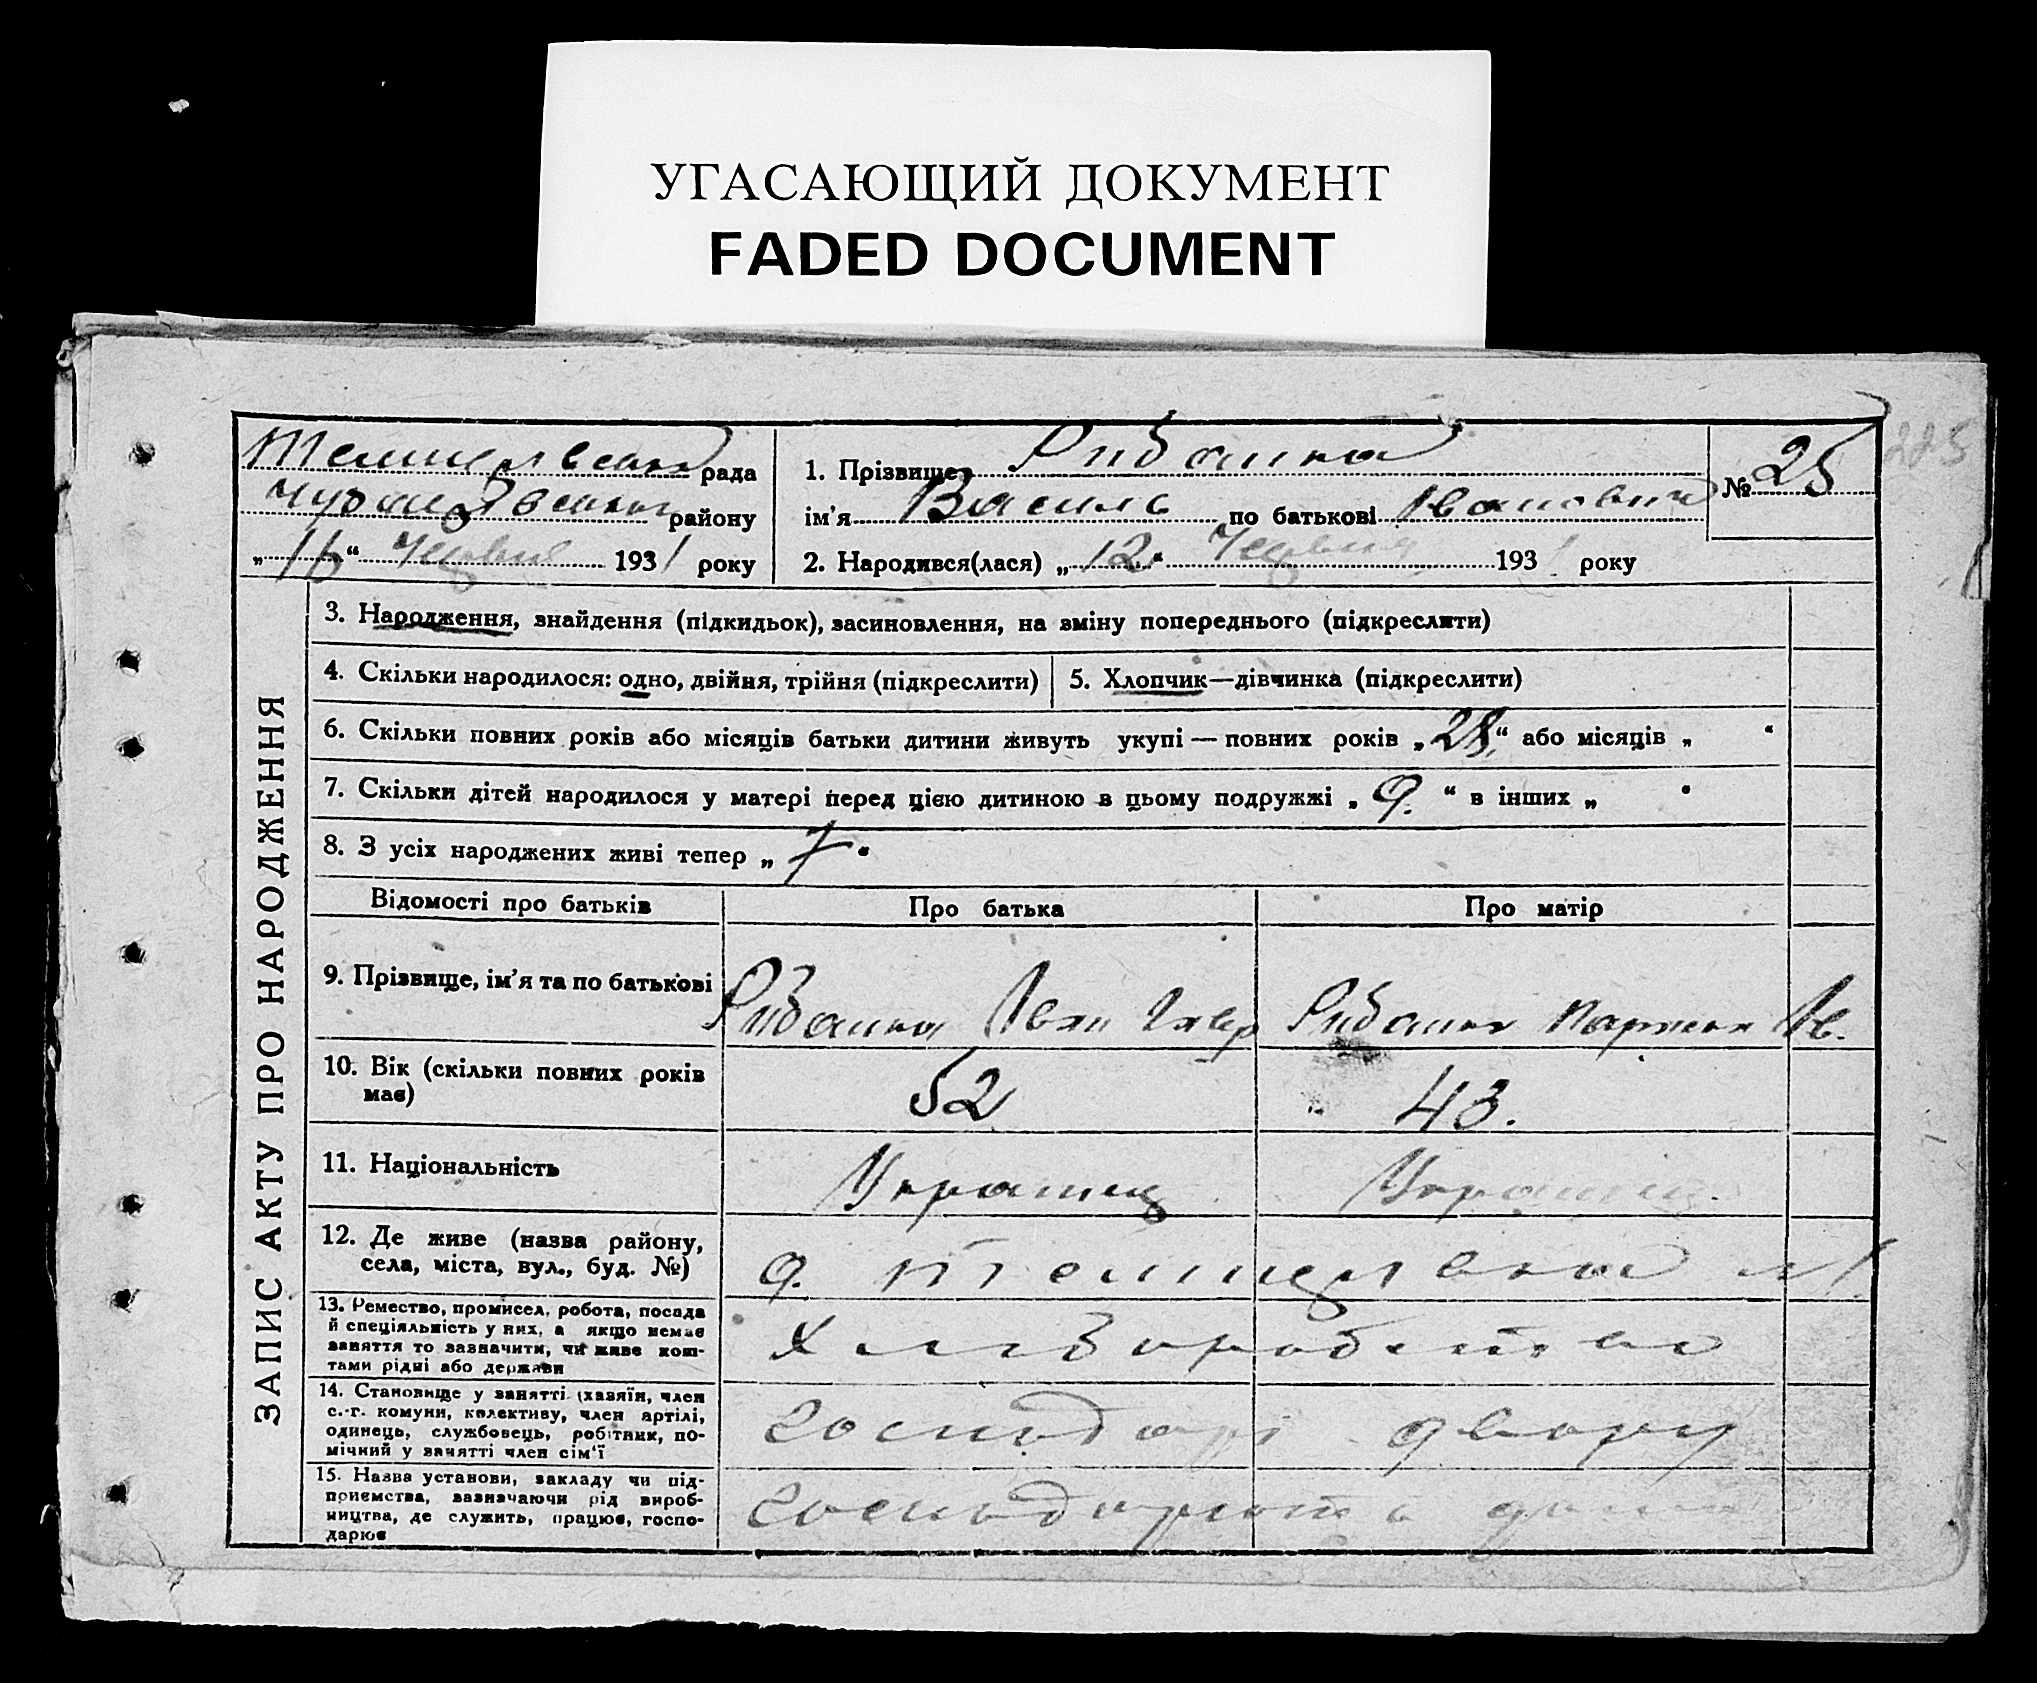 УГАСАЮЩИЙ ДОКУМЕНТ
FADED DOCUMENT
225
рада
району
„16“ Червня 1931 року
1. Прізвище Рибалка
ім'я Василь по батькові Іванович
2. Народився(лася) „12“ Червня 1931 року
№ 25
ЗАПИС АКТУ ПРО НАРОДЖЕННЯ
3. Народження, знайдення (підкидьок), засиновлення, на зміну попереднього (підкреслити)
4. Скільки народилося: одно, двійня, трійня (підкреслити)
5. Хлопчик—дівчинка (підкреслити)
6. Скільки повних років або місяців батьки дитини живуть укупі — повних років „28“ або місяців „ “
7. Скільки дітей народилося у матері перед цією дитиною в цьому подружжі „ 9. “ в інших „ “
8. З усіх народжених живі тепер „ 7 “
Відомості про батьків
Про батька
Про матір
9. Прізвище, ім'я та по батькові
Рибалка Іван Гавр
Рибалка Ів.
10. Вік (скільки повних років
має)
52
43.
11. Національність
Українец
Українец.
12. Де живе (назва району,
села, міста, вул., буд. №)
13. Ремество, промисел, робота, посада
й спеціяльність у них, а якщо немає
заняття то зазначити, чи живе кош-
тами рідні або держави
Хліборобство
14. Становище у занятті (хазяїн, член
с.-г. комуни, колективу, член артілі,
одинець, службовець, робітник, по-
мічний у занятті член сім'ї
господарі двору
15. Назва установи, закладу чи під-
приємства, зазначаючи рід вироб-
ництва, де служить, працює, госпо-
дарює